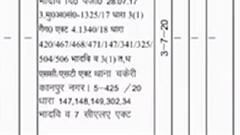 भादवि दि0 पंजी0 28.07.17
3,मु0अ0सं0-1325/17 धारा 3(1)
गैग0 एक्ट 4.1340/18 धारा
420/467/468/471/147/341/325/
504/506 भादवि व 3(1) त,ध
एससी.एसटी एक्ट थाना चकेरी
कानपुर नगर | 5-425 /20
धारा 147,148,149,302,34
भादवि व 7 सीएलए एक्ट
3-7-20